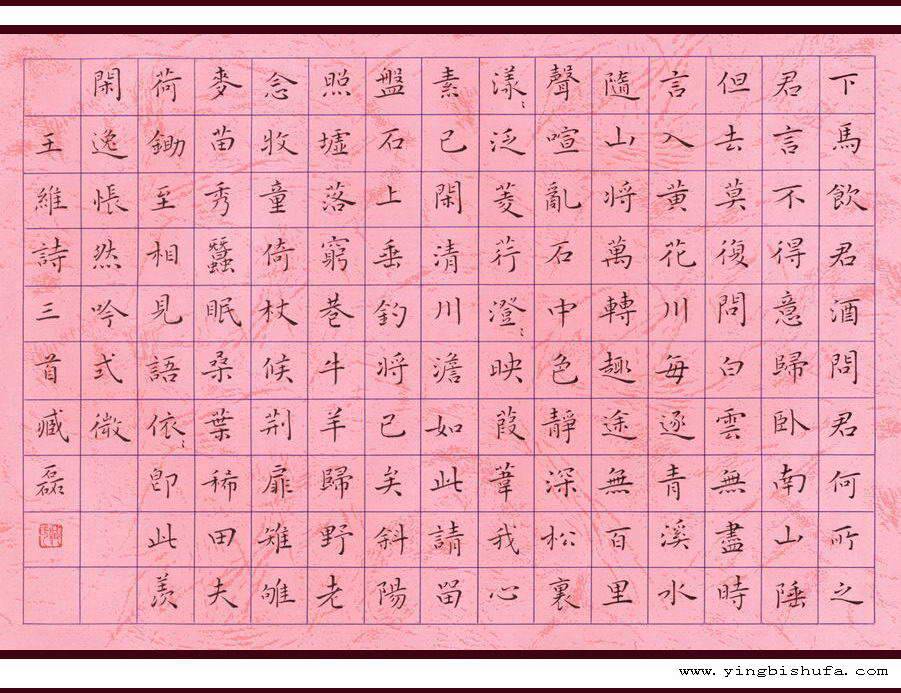 下馬飲君酒問君何所之
君言不得意歸卧南山陲
但去莫復問白雲無盡時
言入黃花川每逐青溪水
隨山將萬轉趣途無百里
聲喧亂石中色靜深松裏
漾〻泛菱荇澄〻映葭葦我心
素已閑清川澹如此請留
盤石上垂釣將已矣斜陽
照墟落窮巷牛羊歸野老
念牧童倚杖候荆扉雉雊
麥苗秀蠶眠桑葉稀田夫
荷鋤至相見語依〻即此羨
閑逸悵然吟式微
王維詩三首臧磊
www.yingbishufa.com